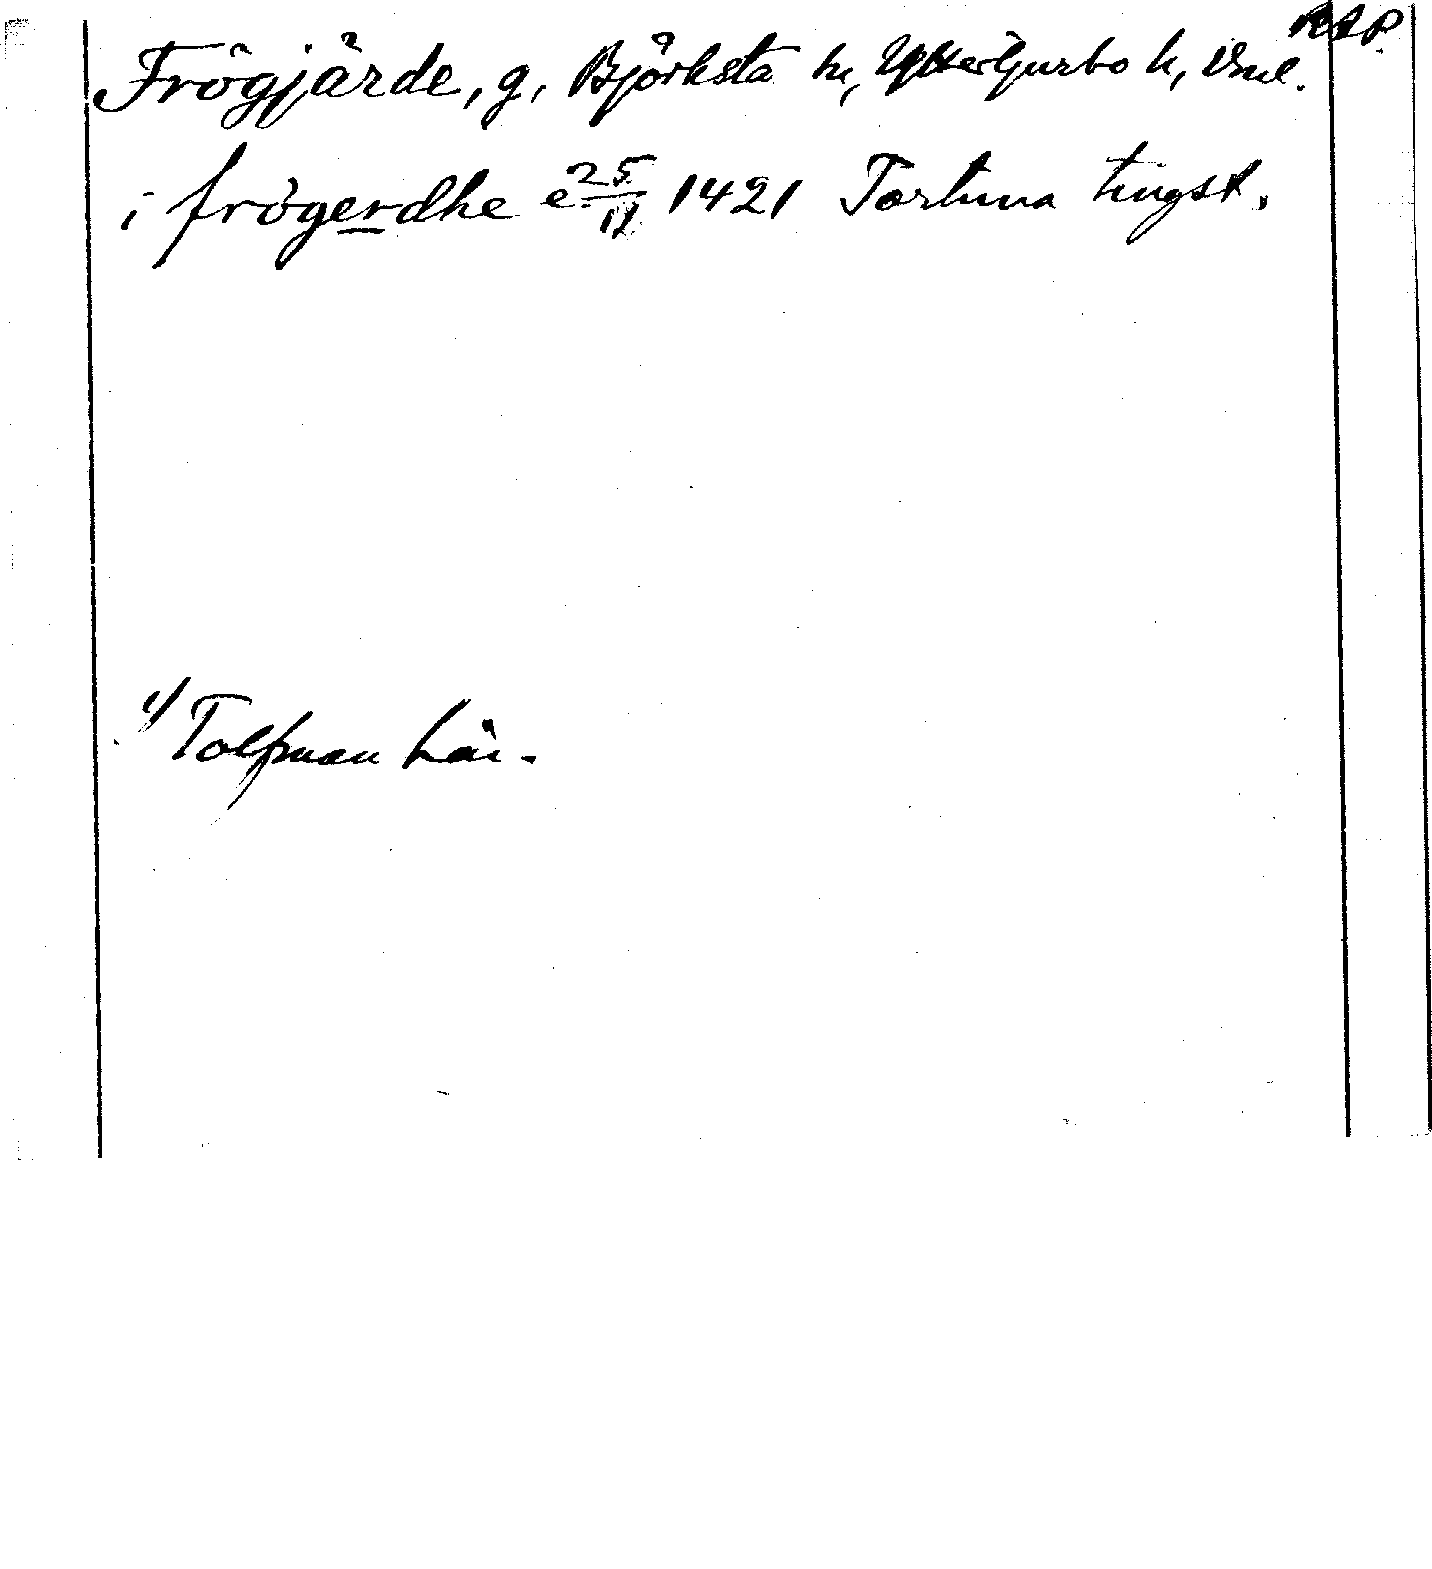 RAP.
Frögjärde, g, Björksta sn, Yttertjurbo h, Vsml.
i frögerdhe e. 25/11 1421 Tortuna tingst.
1/ Tolfman här.